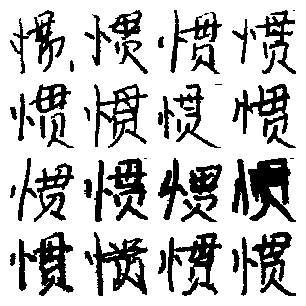 惯惯惯惯
惯惯惯惯
惯惯惯惯
惯惯惯惯